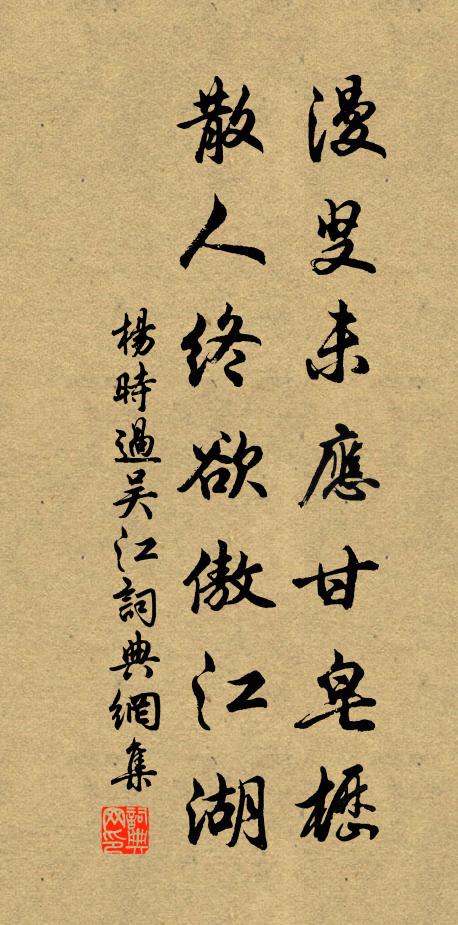 漫叟未應甘皂櫪
散人終欲傲江湖
楊時過吳江詞典網集
詞典网印